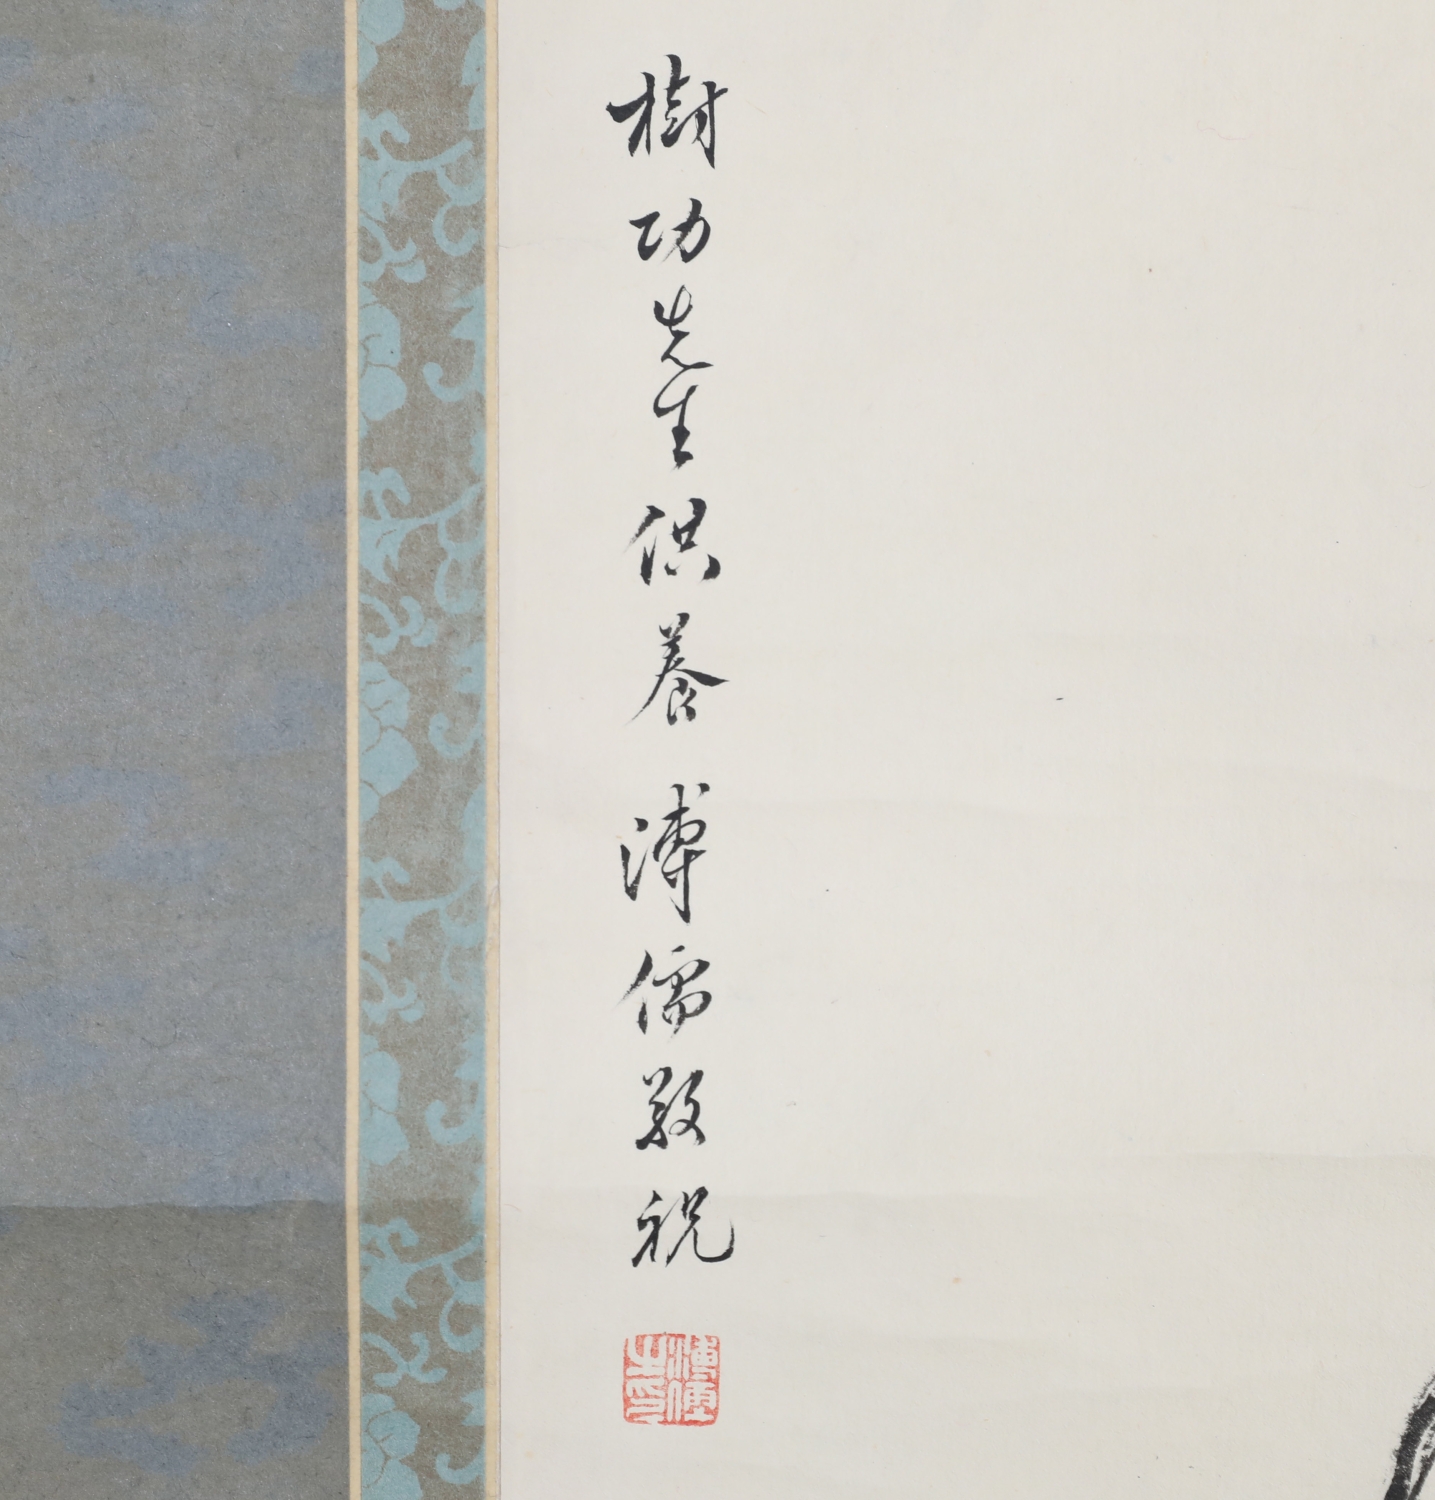 樹功先生供養 溥儒敬祝
溥儒之印